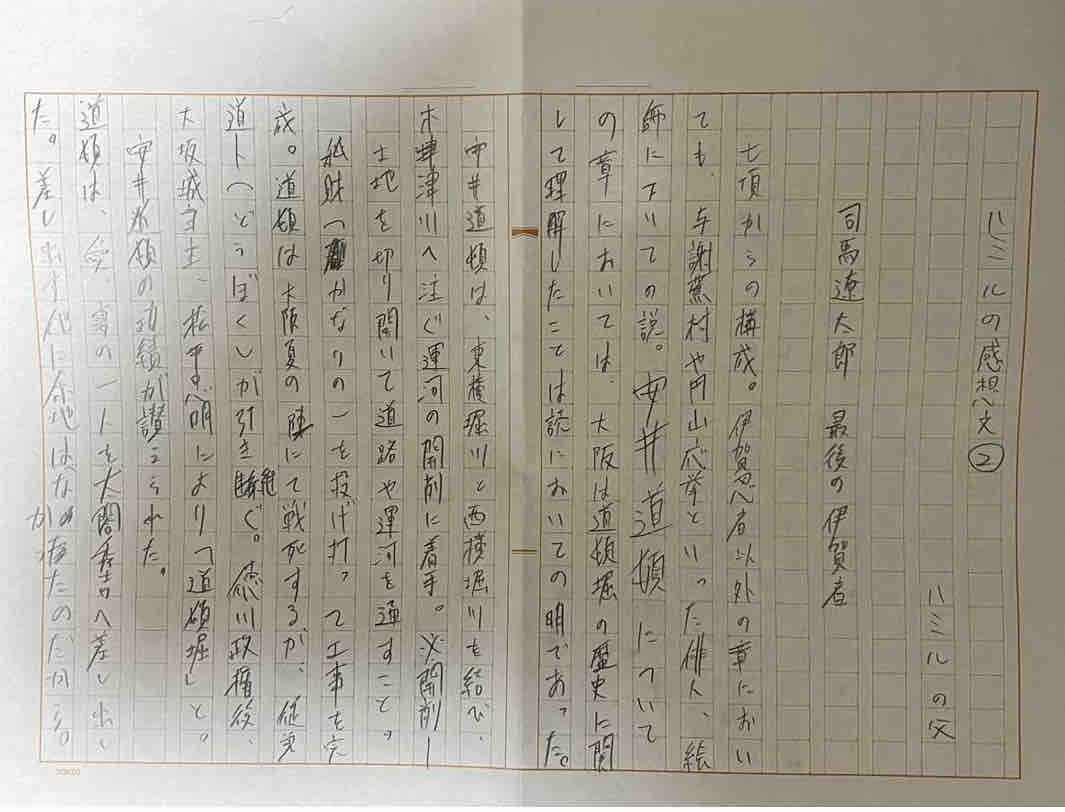 ハミルの感想文②
ハミルの父
司馬遼太郎 最後の伊賀者
七項からの構成。伊賀忍者以外の章におい
ても、与謝蕪村や円山応挙といった俳人、絵
師に下いての説。安井道頓について
の章においては、大阪は道頓堀の歴史に関
して理解したことは読においての明であった。
安井道頓は、東横堀川と西横堀川を結び、
木津川へ注ぐ運河の開削に着手。※開削ー
土地を切り開いて道路や運河を通すこと。
私財かなりの一を投げ打って工事を完
成。道頓は大阪夏の陣にて戦死するが、従弟
道卜(どうぼく)が引き継ぐ。徳川政権後、
大坂城ヨ主、松平忠明により「道頓堀」と。
安井道頓の功績が讃えられた。
道頓は、愛妻の一人を太閤秀吉へ差し出し
た。差し出す代に余地はなかったのだろう。